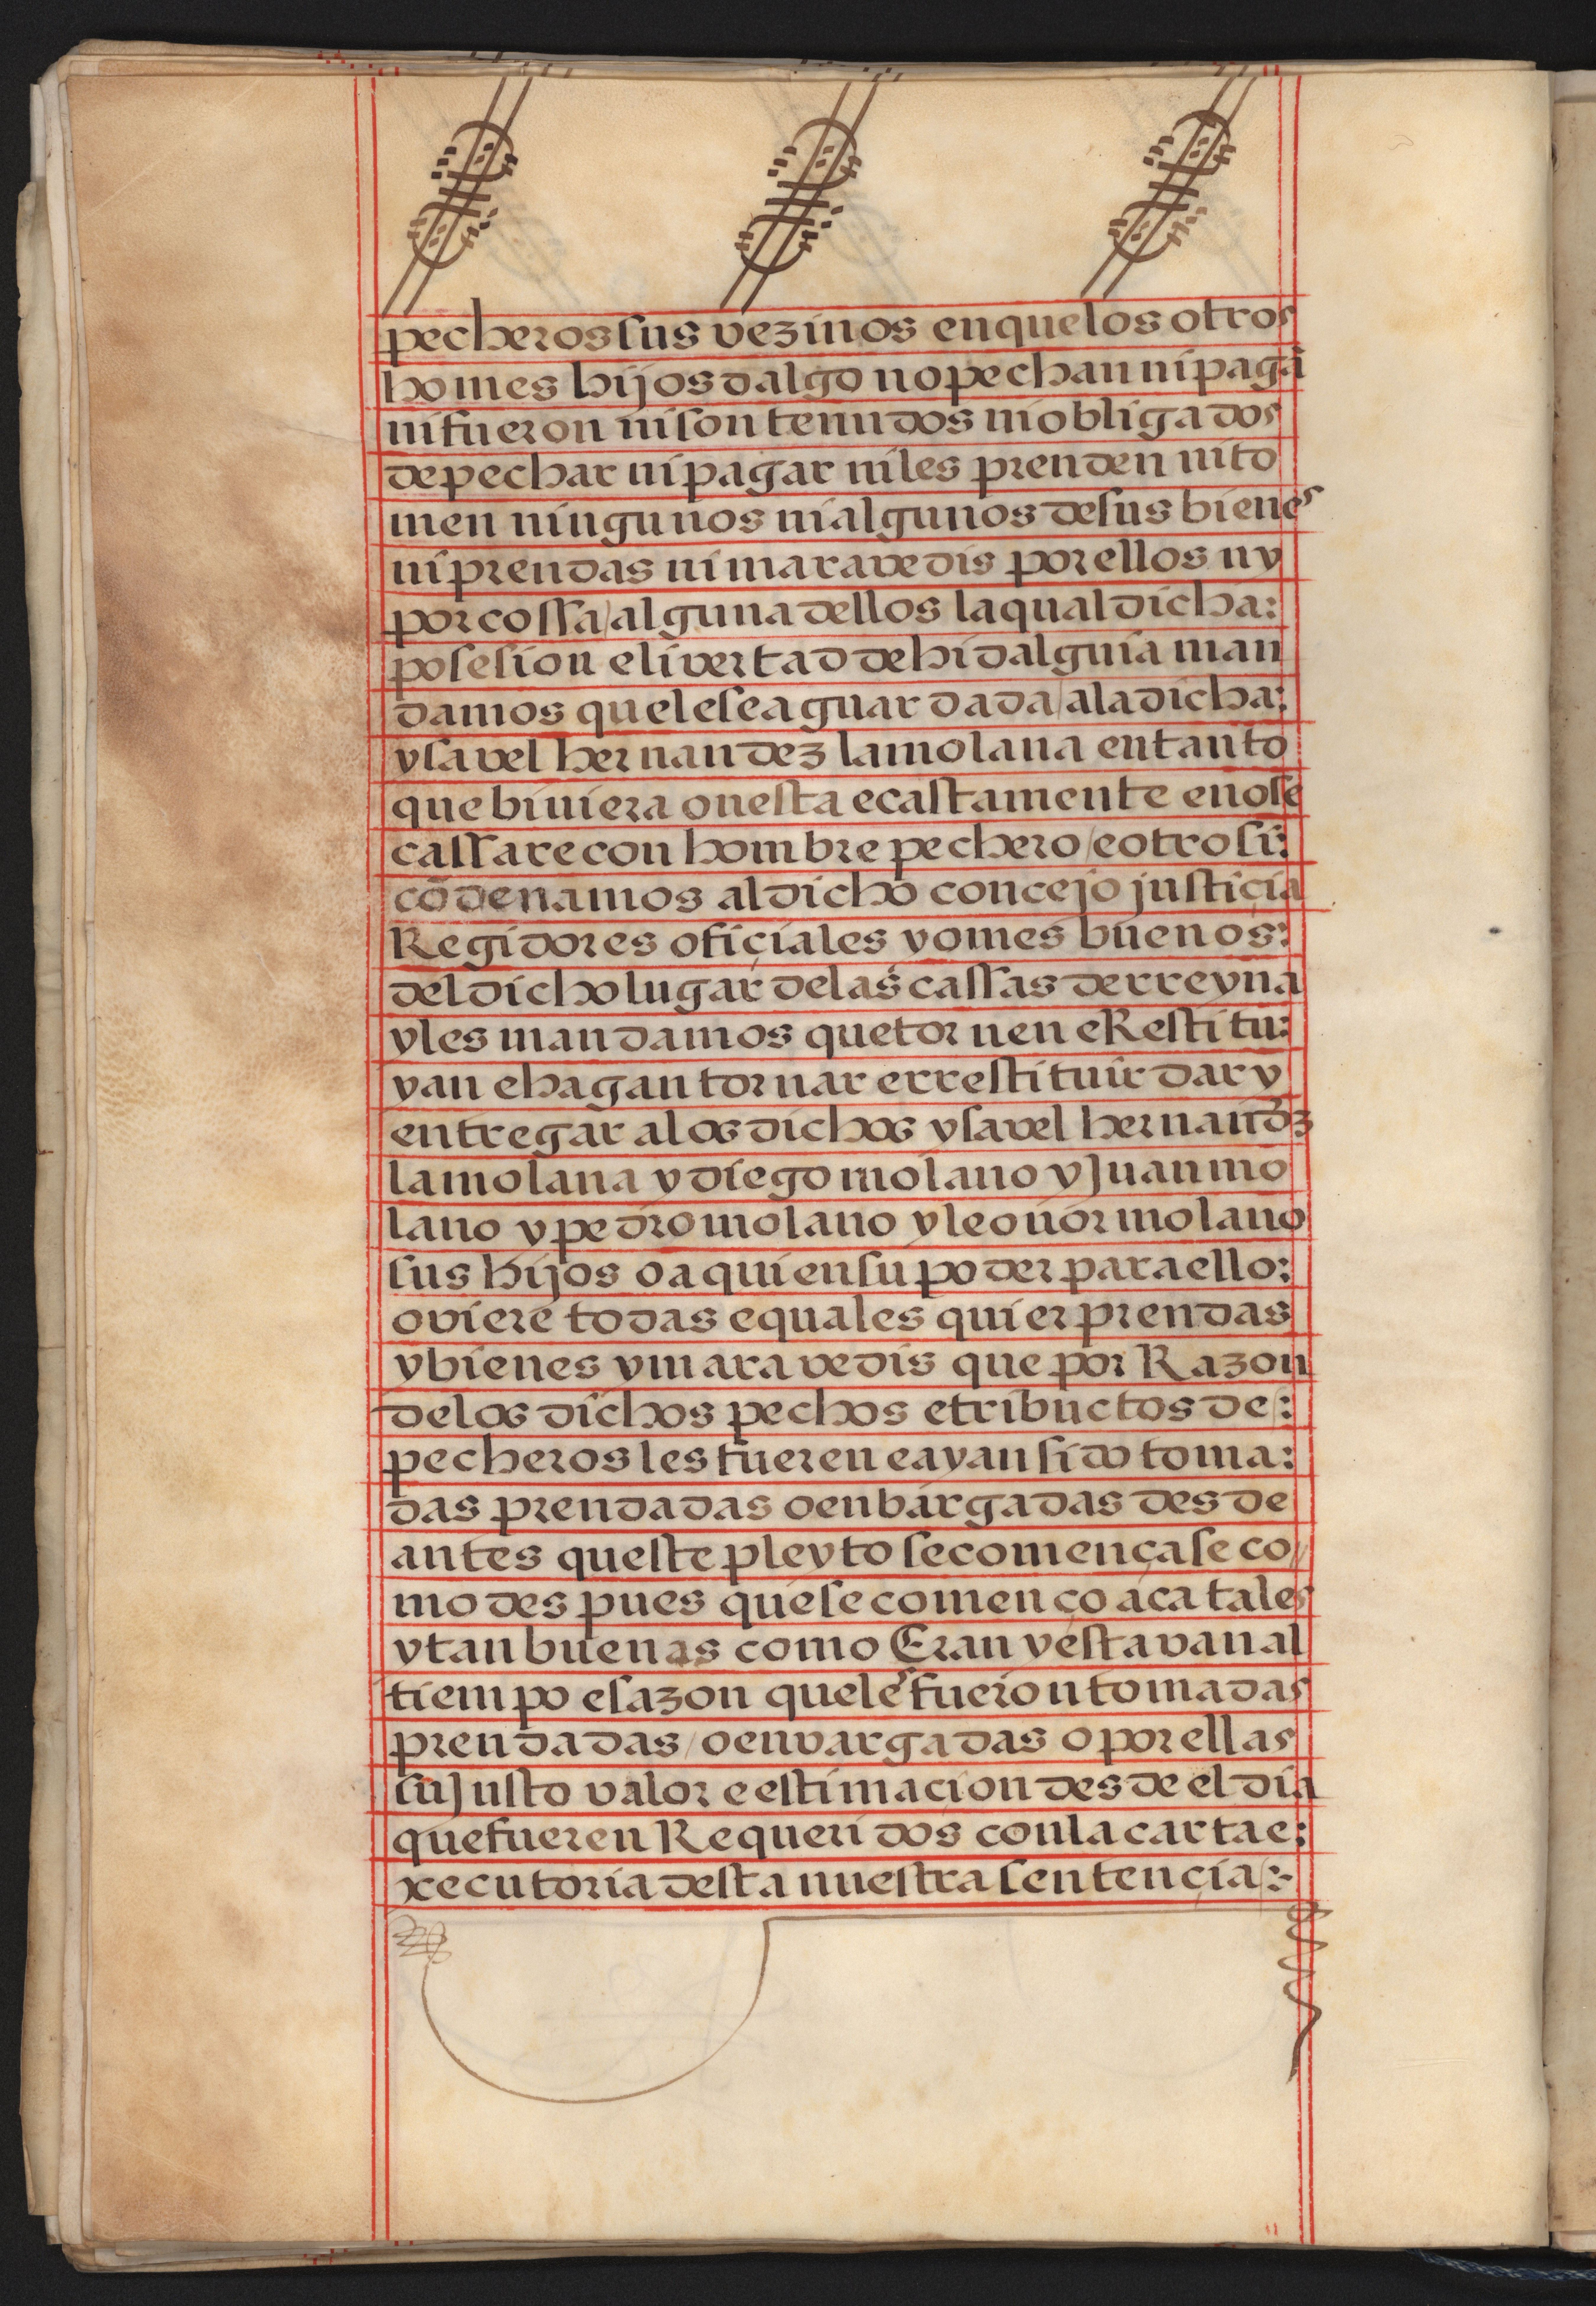 pecheros sus vezinos en que los otros
homes hijos dalgo no pechan ni pagā
ni fueron ni son tenudos ni obligados
de pechar ni pagar ni les prenden ni to
men ningunos ni algunos de sus bienes
ni prendas ni maravedis por ellos ny
por cossa/alguna dellos la qual dicha:
posesion e livertad de hidalguia man
damos que le sea guardada/a la dicha:
ysavel hernandez la molana en tanto
que biviera onesta e castamente e no se
cassare con hombre pechero/e otro si:
cōdenamos al dicho concejo justiçia
Regidores ofiçiales y omes buenos:
del dicho lugar de las cassas de rreyna
y les mandamos que tornen e Restitu:
yan e hagan tornar e rrestituir dar y
entregar a los dichos ysavel hernandz
la molana y diego molano y Juan mo
lano y pedro molano y leonor molano
sus hijos o a quien su poder para ello:
oviere todas e quales quier prendas
y bienes y maravedis que por Razon
de los dichos pechos e tributos de/:
pecheros les fueren e ayan sido toma:
das prendadas o enbargadas desde
antes queste pleyto se començase co//
mo despues que se començo aca tales
y tan buenas como Eran y estavan al
tiempo e sazon que les fueron tomadas
prendadas/o envargadas o por ellas
su Justo valor e estimacion desde el dia
que fueren Requeridos con la carta e:
xecutoria desta nuestra sentençia/:-